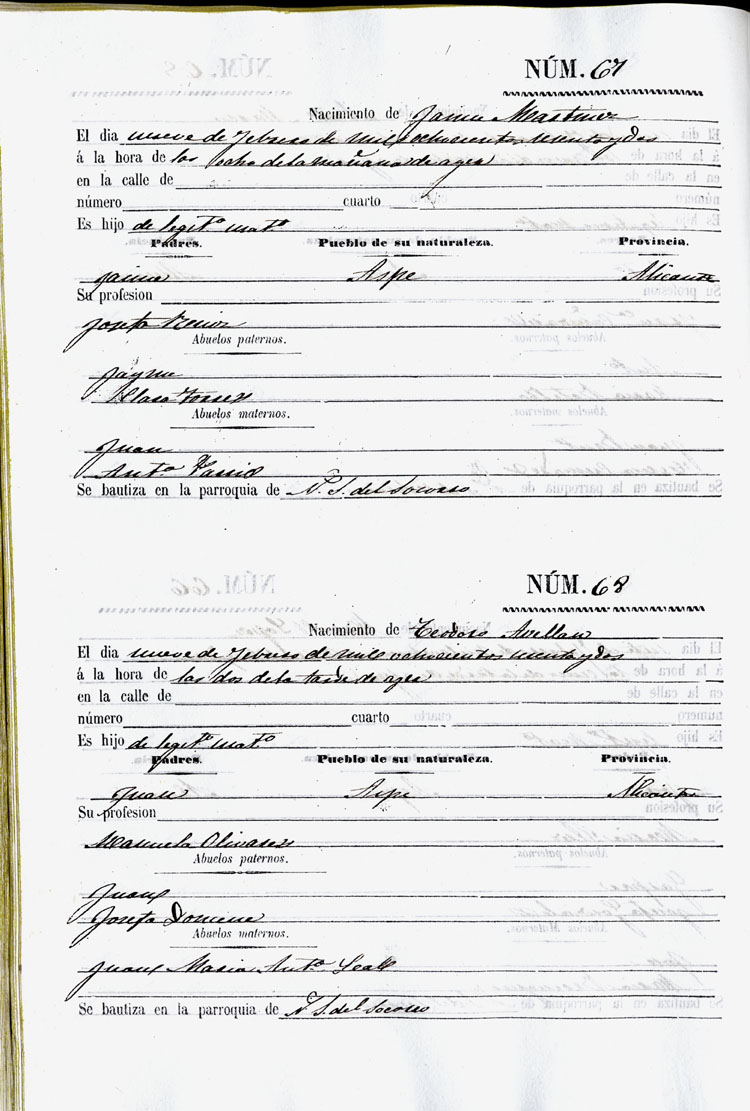 NÚM. 67
Nacimiento de Jaime Martinez
El dia nueve de Febrero de mil ochocientos sesenta y dos
á la hora de las ocho de la mañana de ayer
en la calle de
número cuarto
Es hijo de legit.º mat.º
Padres. Pueblo de su naturaleza. Provincia.
Jaime Aspe Alicante
Su profesion
Josefa
Abuelos paternos.
Jayme
Clara Torres
Abuelos maternos.
Juan
Ant.ª
Se bautiza en la parroquia de N. S. del Socorro
NÚM. 68
Nacimiento de Teodoro Avellan
El dia nueve de Febrero de mil ochocientos sesenta y dos
á la hora de las dos de la tarde de ayer
en la calle de
número cuarto
Es hijo de legit.º mat.º
Padres. Pueblo de su naturaleza. Provincia.
Juan Aspe Alicante
Su profesion
Manuela Olivares
Abuelos paternos.
Juan
Josefa Domene
Abuelos maternos.
Juan Maria Ant.ª
Se bautiza en la parroquia de N. S. del Socorro